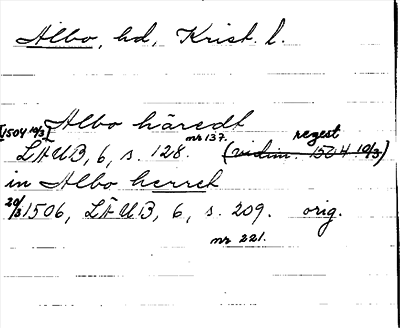 Albo, hd, Krist. l.
Albo häredt
[1504 10/3] LÄUB, 6, s. 128. nr 137. regest (vidim. 1504 10/3)
in Albo herret
20/3 1506, LÄUB, 6, s. 209. orig.
nr 221.